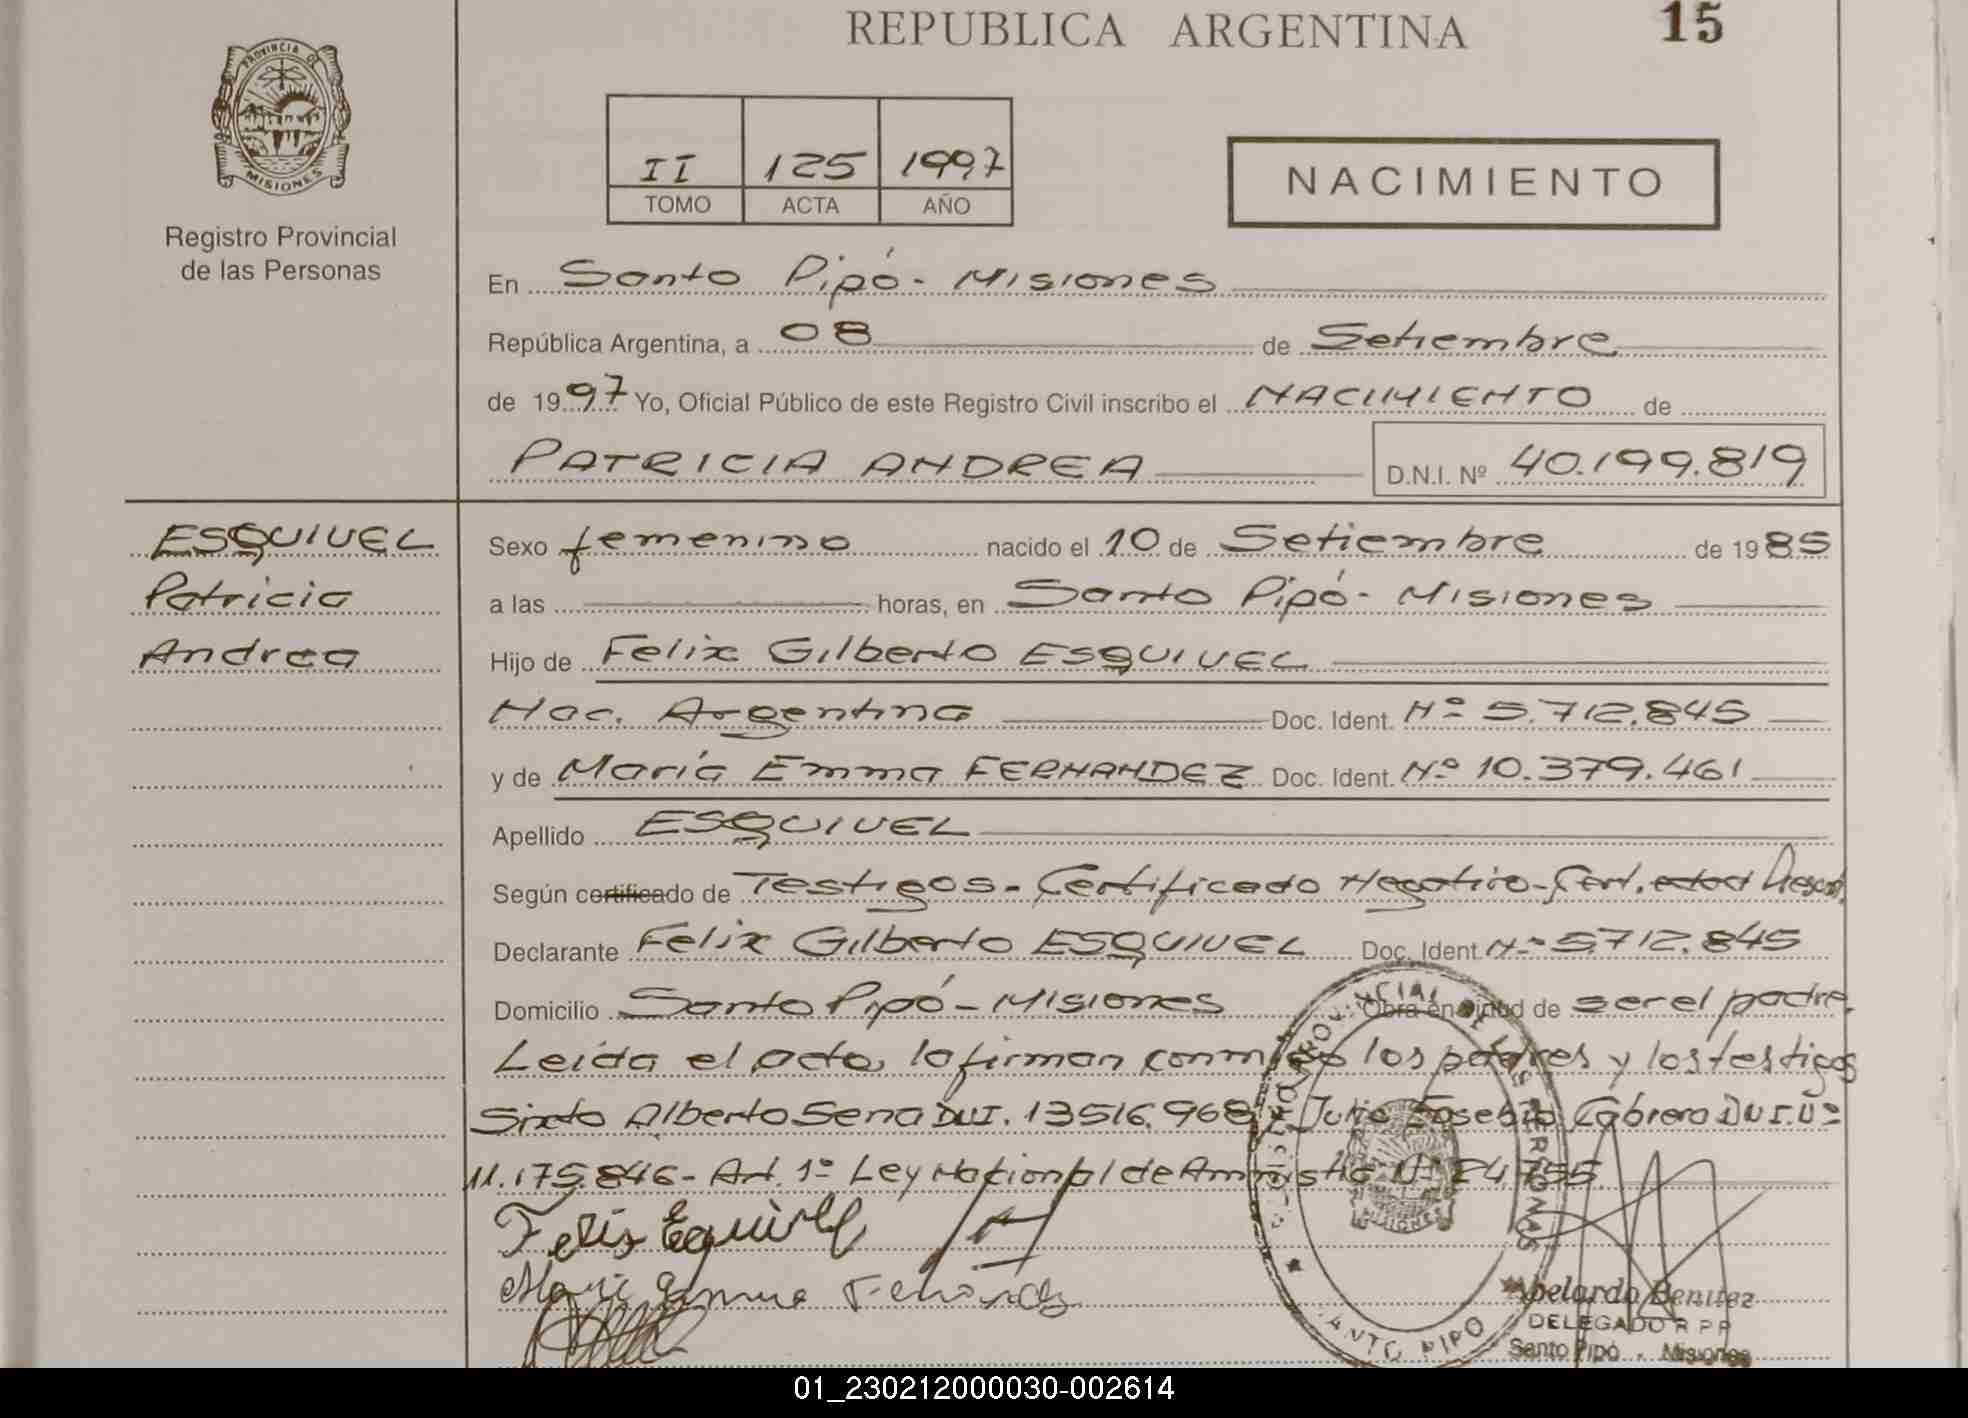 REPUBLICA ARGENTINA
15
PROVINCIA DE
MISIONES
Registro Provincial
de las Personas
II 125 1997
TOMO ACTA AÑO
NACIMIENTO
En Santo Pipó - Misiones
República Argentina, a 08 de Setiembre
de 1997 Yo, Oficial Público de este Registro Civil inscribo el NACIMIENTO de
PATRICIA ANDREA D.N.I. Nº 40.199.819
ESQUIVEL
Patricia
Andrea
Sexo femenino nacido el 10 de Setiembre de 1985
a las horas, en Santo Pipó - Misiones
Hijo de Felix Gilberto ESQUIVEL
Nac. Argentina Doc. Ident. Nº 5.712.845
y de María Emma FERNANDEZ Doc. Ident. Nº 10.379.461
Apellido ESQUIVEL
Según certificado de Testigos - Certificado Negativo - Cert. edad
Declarante Felix Gilberto ESQUIVEL Doc. Ident Nº 5.712.845
Domicilio Santo Pipó - Misiones Obra en virtud de ser el padre.
Leída el acta, la firman conmigo los padres y los testigos
Sixto Alberto Sena DNI. 13516.968 y Julio Eusebio Cabrera DNI. Nº
11.175.846 - Art. 1º Ley Nacional de Amnistía Nº 24755
Felix Esquivel
Maria Emma Fernández
PROVINCIAL DE LAS PERSONAS
MISIONES
SANTO PIPO
Abelardo Benitez
DELEGADO R P P
Santo Pipó - Misiones
01_230212000030-002614